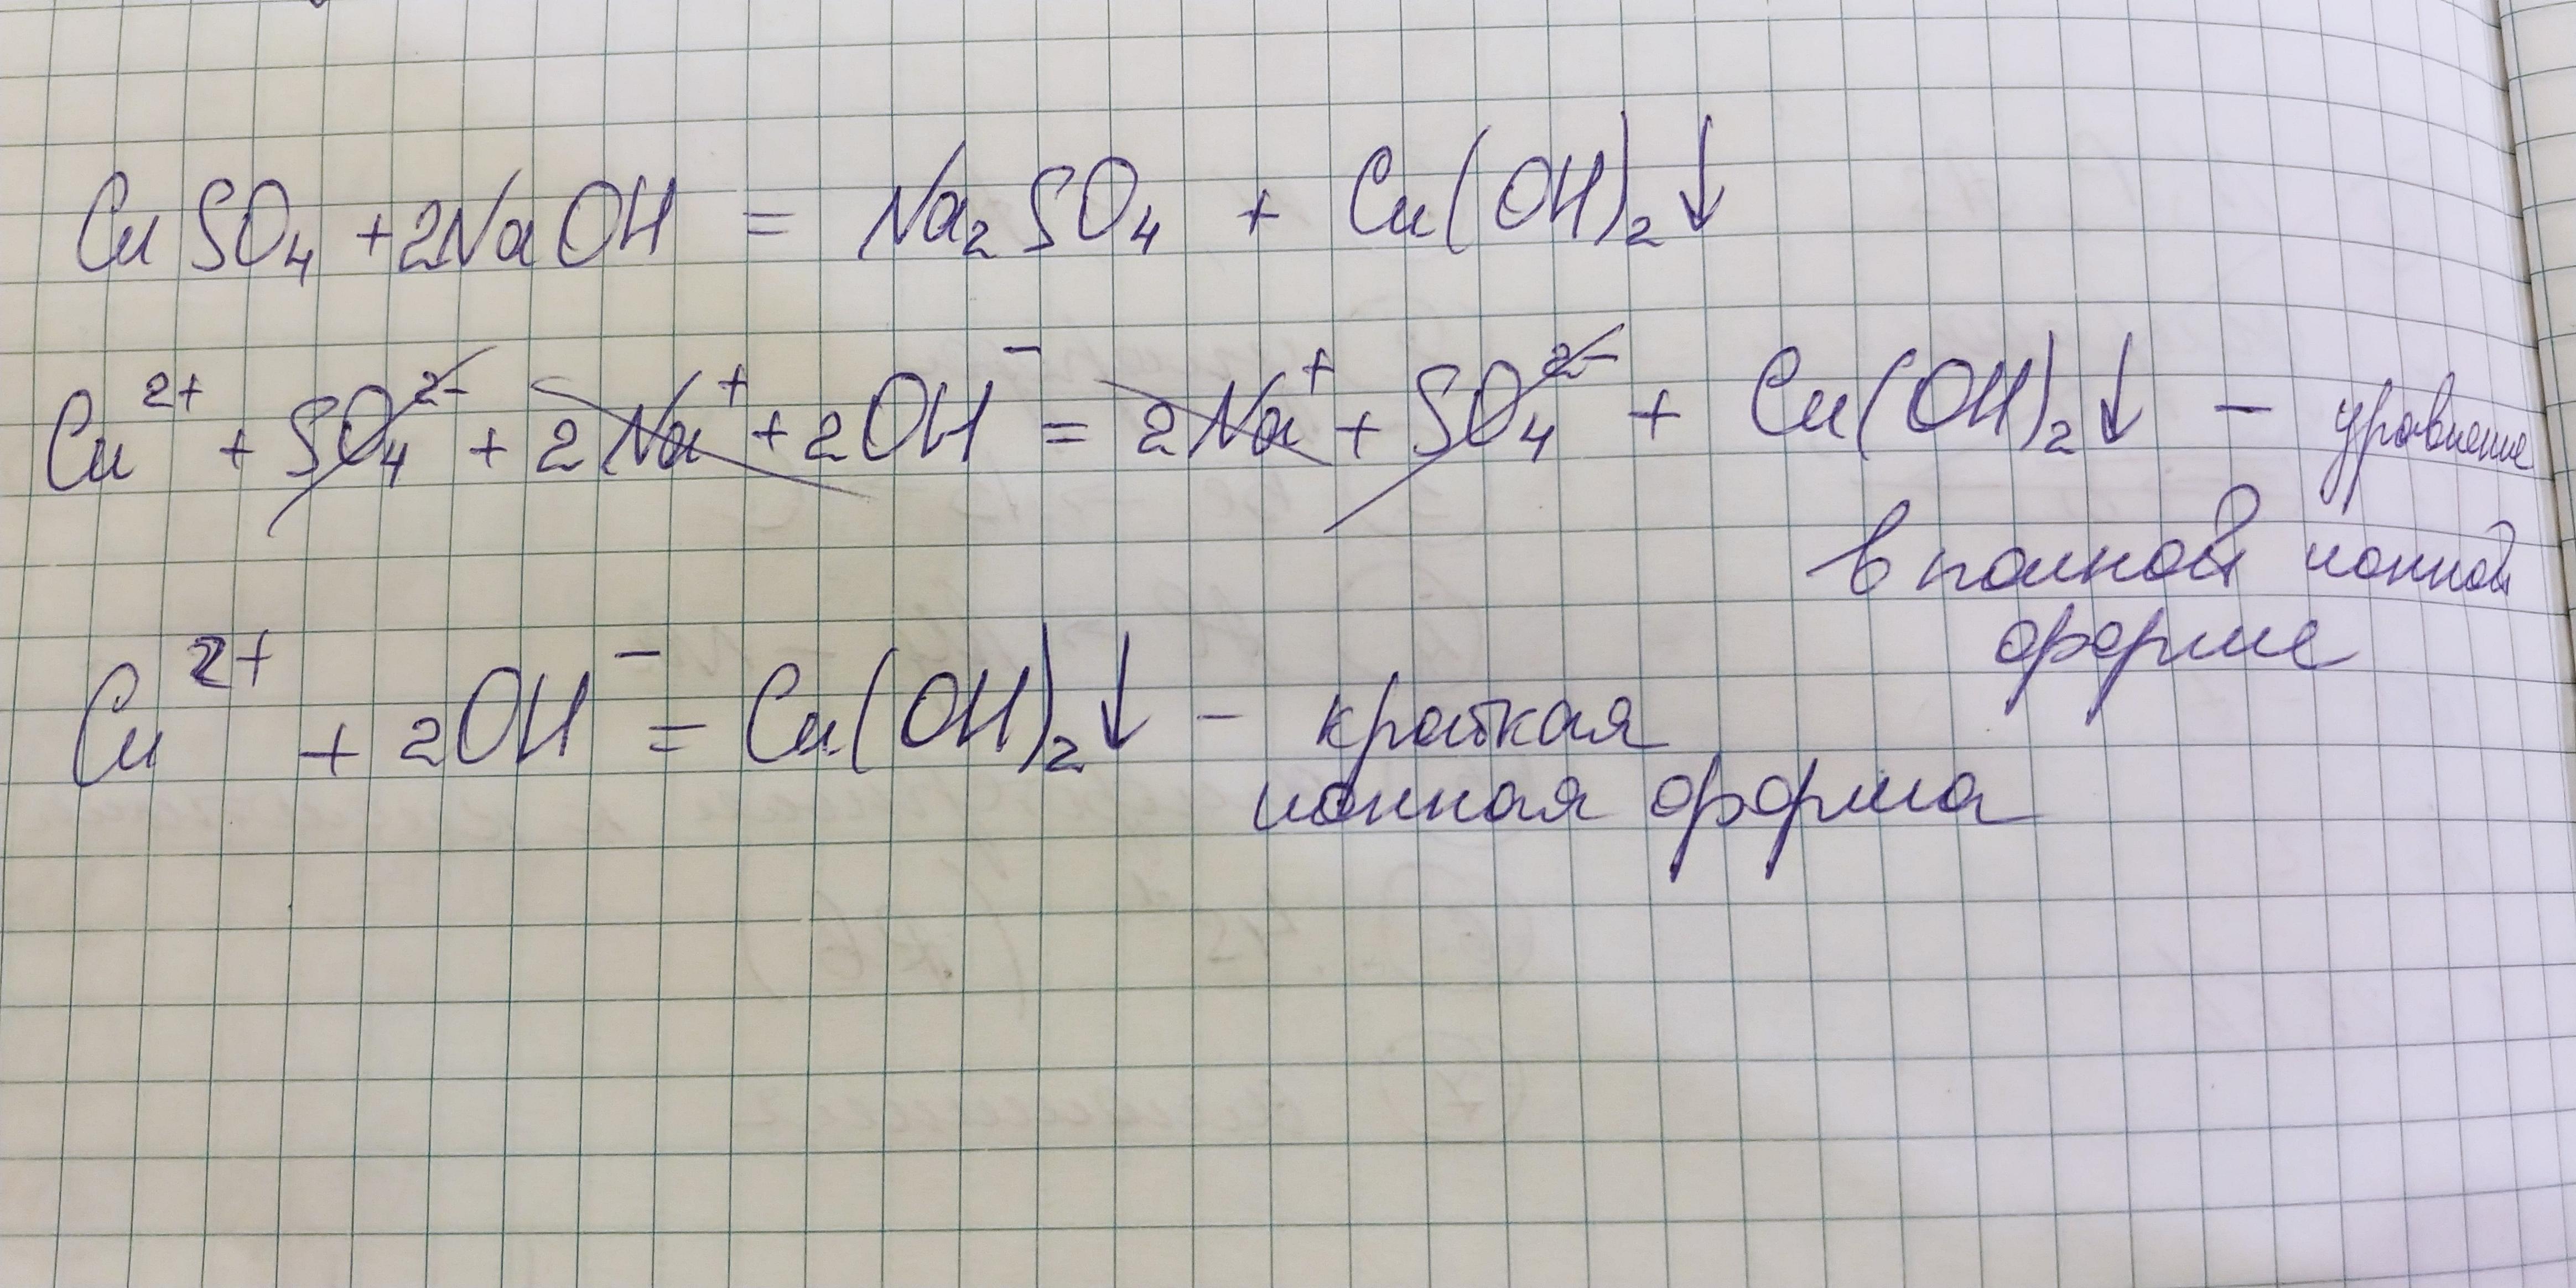 CuSO₄ + 2NaOH = Na₂SO₄ + Cu(OH)₂↓
Cu²⁺ + SO₄²⁻ + 2Na⁺ + 2OH⁻ = 2Na⁺ + SO₄²⁻ + Cu(OH)₂↓ – уравнение
в полной ионной
форме
Cu²⁺ + 2OH⁻ = Cu(OH)₂↓ – краткая
ионная форма